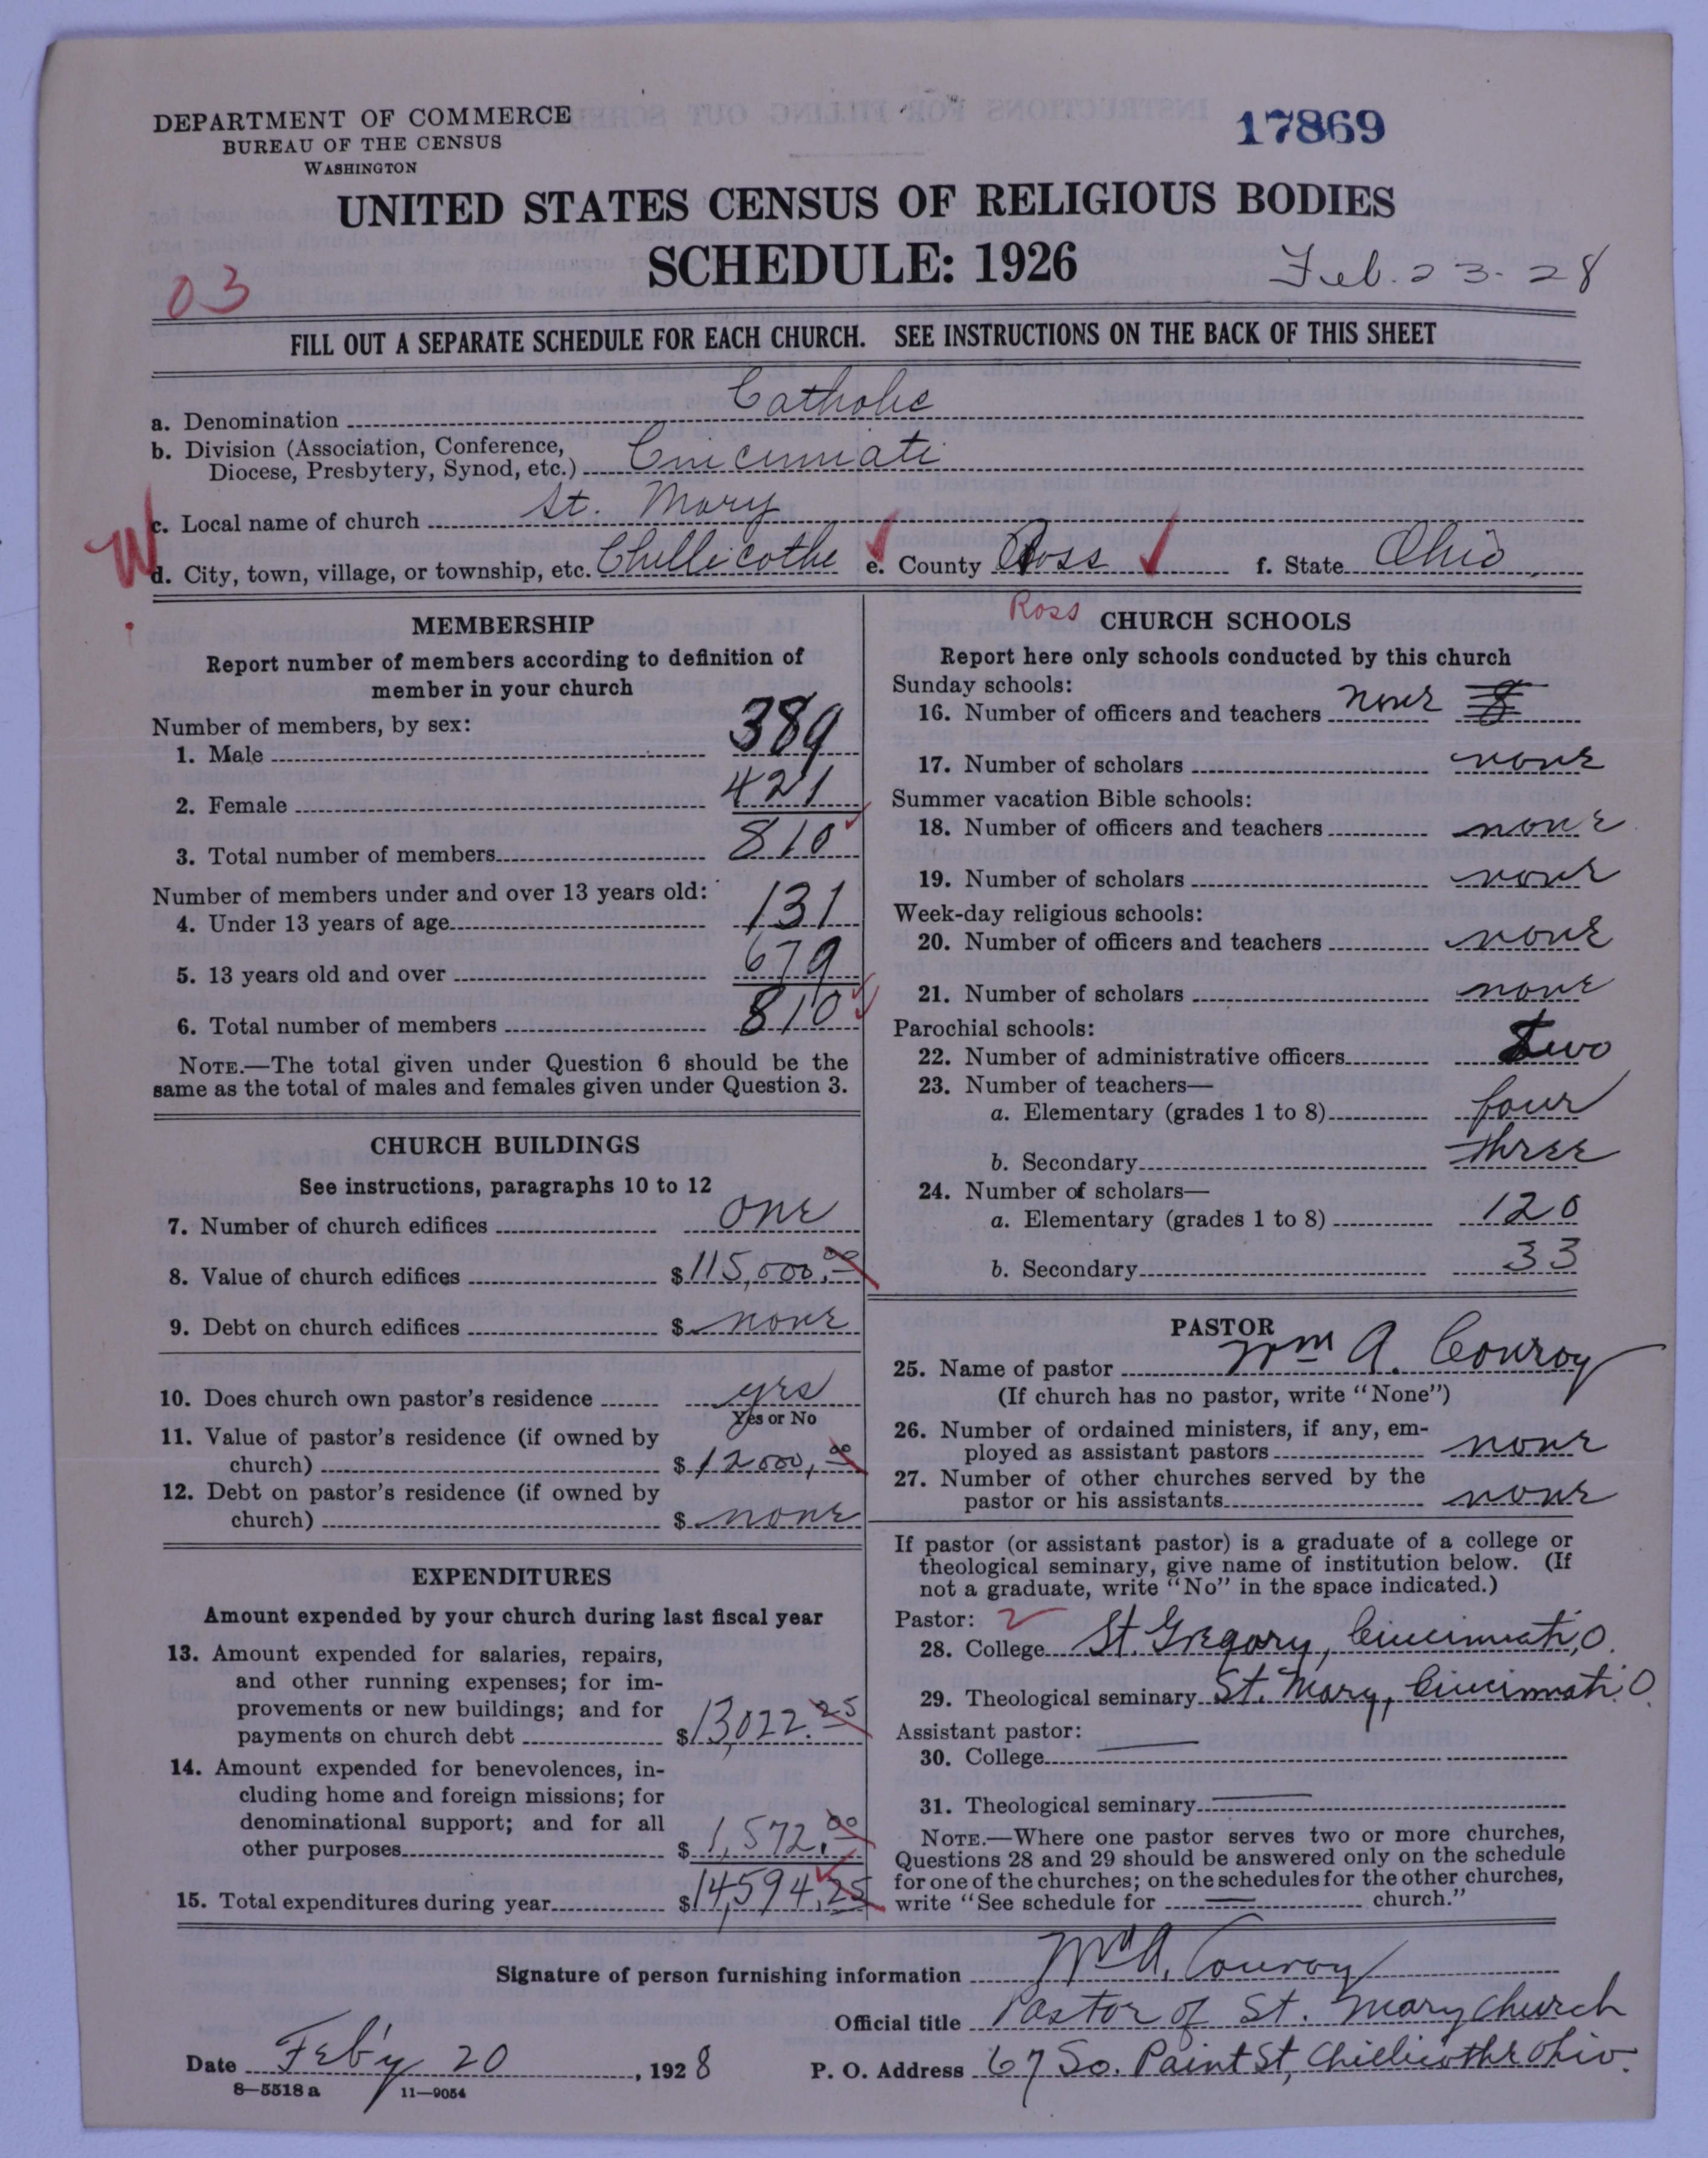 DEPARTMENT OF COMMERCE
BUREAU OF THE CENSUS
WASHINGTON
17869
UNITED STATES CENSUS OF RELIGIOUS BODIES
SCHEDULE: 1926
Feb. 23-28
03
FILL OUT A SEPARATE SCHEDULE FOR EACH CHURCH. SEE INSTRUCTIONS ON THE BACK OF THIS SHEET
a. Denomination Catholic
b. Division (Association, Conference,
Diocese, Presbytery, Synod, etc.) Cincinnati
c. Local name of church St. Mary
W
d. City, town, village, or township, etc. Chillicothe e. County Ross f. State Ohio
Ross
MEMBERSHIP
Report number of members according to definition of
member in your church
Number of members, by sex:
1. Male 389
2. Female 421
3. Total number of members 810
Number of members under and over 13 years old:
4. Under 13 years of age 131
5. 13 years old and over 679
6. Total number of members 810
NOTE.—The total given under Question 6 should be the
same as the total of males and females given under Question 3.
CHURCH BUILDINGS
See instructions, paragraphs 10 to 12
7. Number of church edifices one
8. Value of church edifices $115,000.00
9. Debt on church edifices $ none
10. Does church own pastor's residence yes
Yes or No
11. Value of pastor's residence (if owned by
church) $12000,00
12. Debt on pastor's residence (if owned by
church) $ none
EXPENDITURES
Amount expended by your church during last fiscal year
13. Amount expended for salaries, repairs,
and other running expenses; for im-
provements or new buildings; and for
payments on church debt $13,022.25
14. Amount expended for benevolences, in-
cluding home and foreign missions; for
denominational support; and for all
other purposes $1,572.00
15. Total expenditures during year $14,594.25
CHURCH SCHOOLS
Report here only schools conducted by this church
Sunday schools:
16. Number of officers and teachers none
17. Number of scholars none
Summer vacation Bible schools:
18. Number of officers and teachers none
19. Number of scholars none
Week-day religious schools:
20. Number of officers and teachers none
21. Number of scholars none
Parochial schools:
22. Number of administrative officers two
23. Number of teachers—
a. Elementary (grades 1 to 8) four
b. Secondary three
24. Number of scholars—
a. Elementary (grades 1 to 8) 120
b. Secondary 33
PASTOR
25. Name of pastor Wm A. Conroy
(If church has no pastor, write "None")
26. Number of ordained ministers, if any, em-
ployed as assistant pastors none
27. Number of other churches served by the
pastor or his assistants none
If pastor (or assistant pastor) is a graduate of a college or
theological seminary, give name of institution below. (If
not a graduate, write "No" in the space indicated.)
Pastor: 2
28. College St. Gregory, Cincinnati, O.
29. Theological seminary St. Mary, Cincinnati O.
Assistant pastor:
30. College
31. Theological seminary
NOTE.—Where one pastor serves two or more churches,
Questions 28 and 29 should be answered only on the schedule
for one of the churches; on the schedules for the other churches,
write "See schedule for church."
Signature of person furnishing information Wm A. Conroy
Official title Pastor of St. Mary Church
Date Feb'y 20, 1928 P. O. Address 67 So. Paint St, Chillicothe Ohio.
8—5518a 11—9054